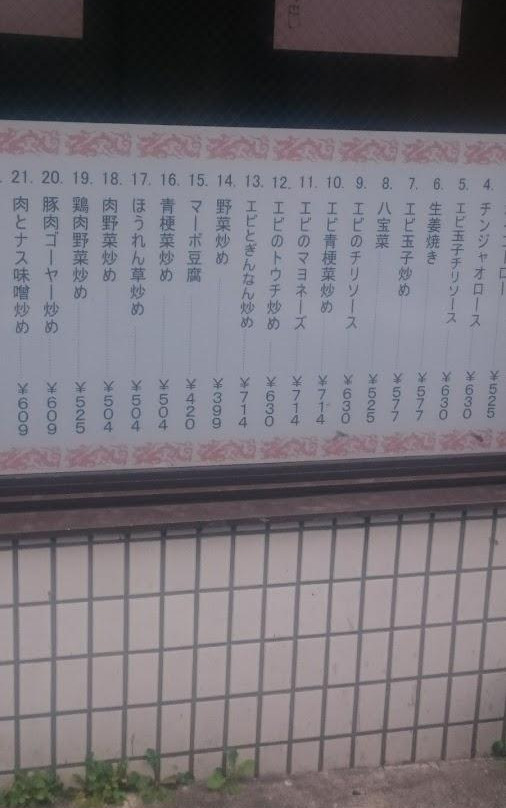 ロー ¥525
4. チンジャオロース ¥630
5. エビ玉子チリソース ¥630
6. 生姜焼き ¥577
7. エビ玉子炒め ¥577
8. 八宝菜 ¥525
9. エビのチリソース ¥630
10. エビ青梗菜炒め ¥714
11. エビのマヨネーズ ¥714
12. エビのトウチ炒め ¥630
13. エビとぎんなん炒め ¥714
14. 野菜炒め ¥399
15. マーボ豆腐 ¥420
16. 青梗菜炒め ¥504
17. ほうれん草炒め ¥504
18. 肉野菜炒め ¥504
19. 鶏肉野菜炒め ¥525
20. 豚肉ゴーヤー炒め ¥609
21. 肉とナス味噌炒め ¥609